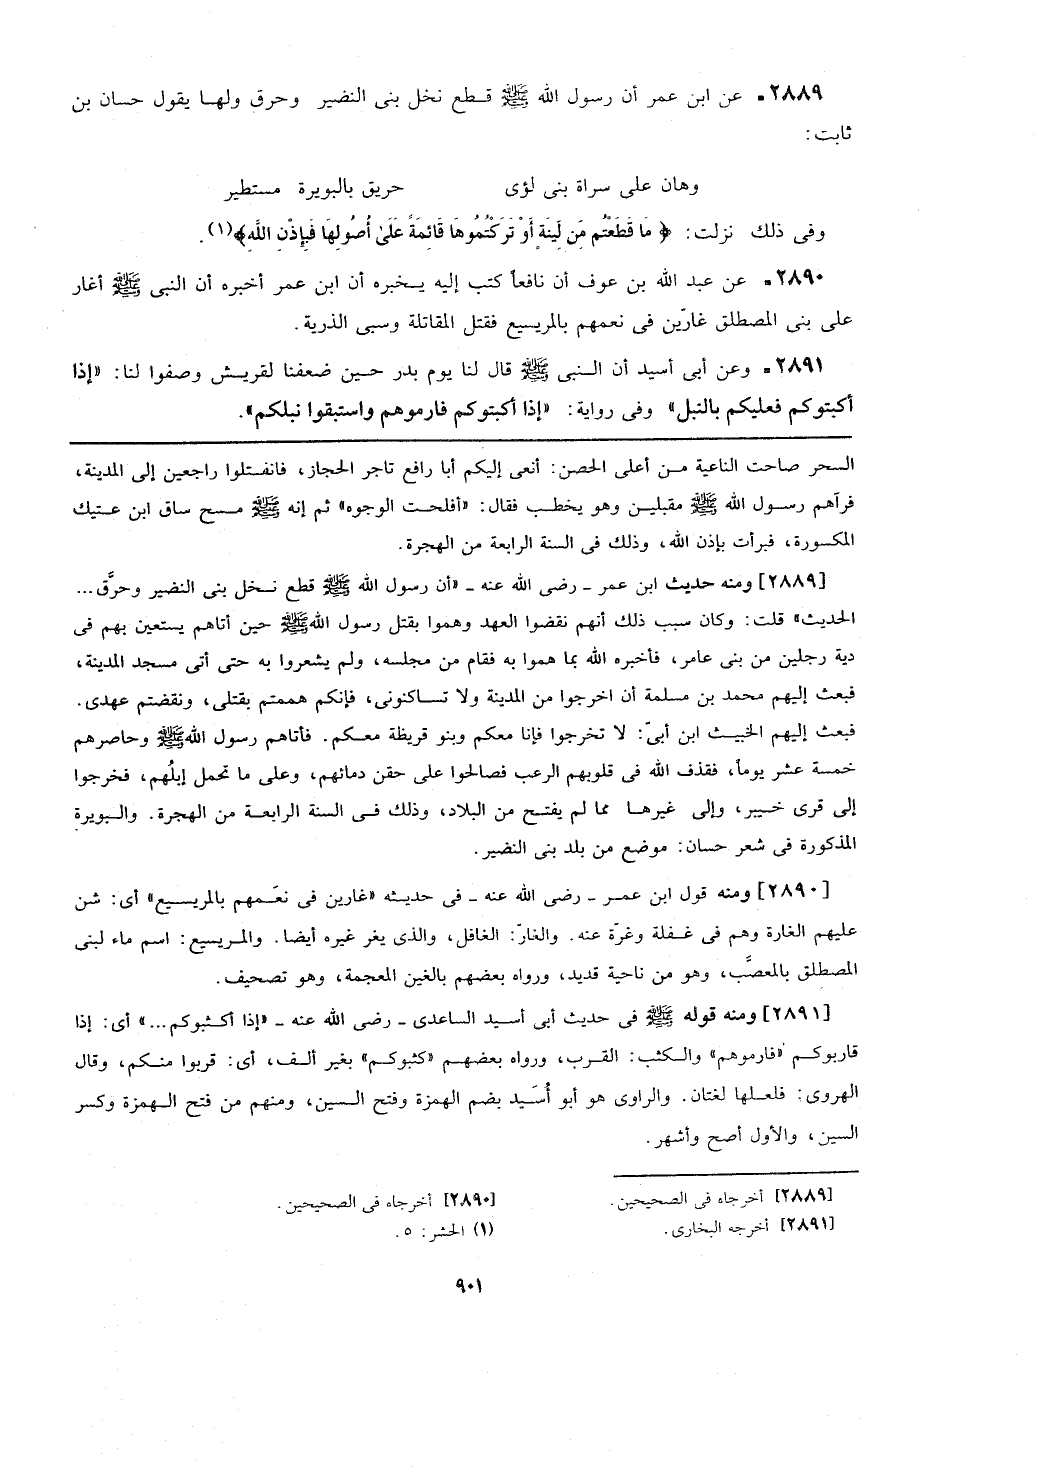 ٢٨٨٩ـ عن ابن عمر أن رسول الله ﷺ قطع نخل بنى النضير وحرق ولها يقول حسان بن
ثابت:
وهان على سراة بنى لؤى حريق بالبويرة مستطير
وفى ذلك نزلت: ﴿ مَا قَطَعْتُم مِّن لِّينَةٍ أَوْ تَرَكْتُمُوهَا قَائِمَةً عَلَىٰ أُصُولِهَا فَبِإِذْنِ اللَّهِ﴾(١).
٢٨٩٠ـ عن عبد الله بن عوف أن نافعاً كتب إليه يخبره أن ابن عمر أخبره أن النبى ﷺ أغار
على بنى المصطلق غارّين فى نعمهم بالمريسيع فقتل المقاتلة وسبى الذرية.
٢٨٩١ـ وعن أبى أسيد أن النبى ﷺ قال لنا يوم بدر حين ضعفنا لقريش وصفوا لنا: «إذا
أكبتوكم فعليكم بالنبل» وفى رواية: «إذا أكبتوكم فارموهم واستبقوا نبلكم».
السحر صاحت الناعية من أعلى الحصن: أنعى إليكم أبا رافع تاجر الحجاز، فانفتلوا راجعين إلى المدينة،
فرآهم رسول الله ﷺ مقبلين وهو يخطب فقال: «أفلحت الوجوه» ثم إنه ﷺ مسح ساق ابن عتيك
المكسورة، فبرأت بإذن الله، وذلك فى السنة الرابعة من الهجرة.
[٢٨٨٩] ومنه حديث ابن عمر ـ رضى الله عنه ـ «أن رسول الله ﷺ قطع نخل بنى النضير وحرَّق...
الحديث» قلت: وكان سبب ذلك أنهم نقضوا العهد وهموا بقتل رسول الله ﷺ حين أتاهم يستعين بهم فى
دية رجلين من بنى عامر، فأخبره الله بما هموا به فقام من مجلسه، ولم يشعروا به حتى أتى مسجد المدينة،
فبعث إليهم محمد بن مسلمة أن اخرجوا من المدينة ولا تساكنونى، فإنكم هممتم بقتلى، ونقضتم عهدى.
فبعث إليهم الخبيث ابن أبىّ: لا تخرجوا فإنا معكم وبنو قريظة معكم. فأتاهم رسول الله ﷺ وحاصرهم
خمسة عشر يوماً، فقذف الله فى قلوبهم الرعب فصالحوا على حقن دمائهم، وعلى ما تحمل إبلُهم، فخرجوا
إلى قرى خيبر، وإلى غيرها مما لم يفتح من البلاد، وذلك فى السنة الرابعة من الهجرة. والبويرة
المذكورة فى شعر حسان: موضع من بلد بنى النضير.
[٢٨٩٠] ومنه قول ابن عمر ـ رضى الله عنه ـ فى حديثه «غارين فى نعَمهم بالمريسيع» أى: شن
عليهم الغارة وهم فى غفلة وغرّة عنه. والغارّ: الغافل، والذى يغر غيره أيضا. والمريسيع: اسم ماء لبنى
المصطلق بالمعصَّب، وهو من ناحية قديد، ورواه بعضهم بالغين المعجمة، وهو تصحيف.
[٢٨٩١] ومنه قوله ﷺ فى حديث أبى أسيد الساعدى ـ رضى الله عنه ـ «إذا أكثبوكم...» أى: إذا
قاربوكم «فارموهم» والكثب: القرب، ورواه بعضهم «كثبوكم» بغير ألف، أى: قربوا منكم، وقال
الهروى: فلعلها لغتان. والراوى هو أبو أُسَيد بضم الهمزة وفتح السين، ومنهم من فتح الهمزة وكسر
السين، والأول أصح وأشهر.
[٢٨٨٩] أخرجاه فى الصحيحين. [٢٨٩٠] أخرجاه فى الصحيحين.
[٢٨٩١] أخرجه البخارى. (١) الحشر: ٥.
٩٠١